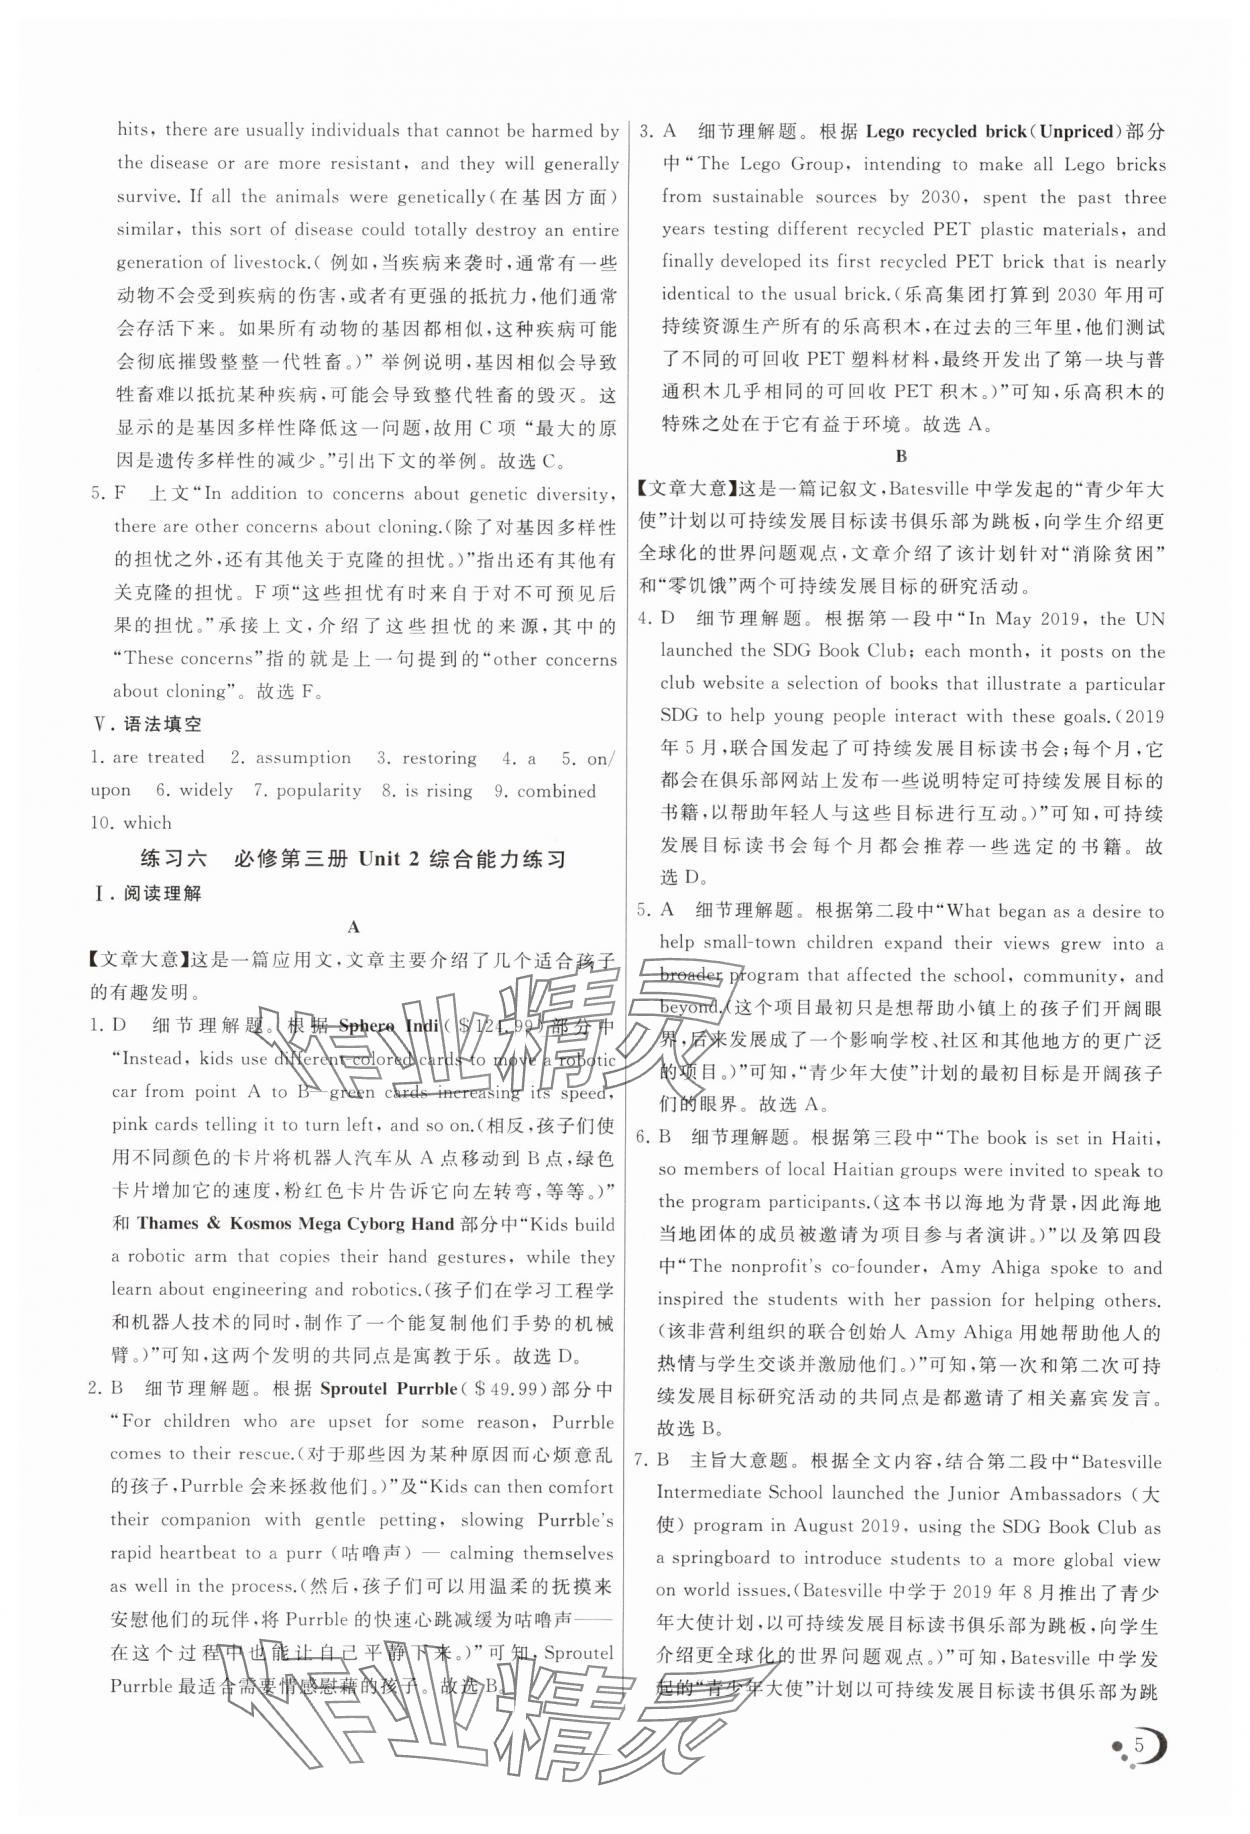 hits, there are usually individuals that cannot be harmed by
the disease or are more resistant, and they will generally
survive. If all the animals were genetically(在基因方面)
similar, this sort of disease could totally destroy an entire
generation of livestock.( 例如,当疾病来袭时,通常有一些
动物不会受到疾病的伤害,或者有更强的抵抗力,他们通常
会存活下来。如果所有动物的基因都相似,这种疾病可能
会彻底摧毁整整一代牲畜。)”举例说明,基因相似会导致
牲畜难以抵抗某种疾病,可能会导致整代牲畜的毁灭。这
显示的是基因多样性降低这一问题,故用 C 项“最大的原
因是遗传多样性的减少。”引出下文的举例。故选 C。
5. F 上文“In addition to concerns about genetic diversity,
there are other concerns about cloning.(除了对基因多样性
的担忧之外,还有其他关于克隆的担忧。)”指出还有其他
有关克隆的担忧。F 项“这些担忧有时来自于不可预见后
果的担忧。”承接上文,介绍了这些担忧的来源,其中的
“These concerns”指的就是上一句提到的“other concerns
about cloning”。故选 F。
Ⅴ. 语法填空
1. are treated 2. assumption 3. restoring 4. a 5. on/
upon 6. widely 7. popularity 8. is rising 9. combined
10. which
练习六 必修第三册 Unit 2 综合能力练习
Ⅰ. 阅读理解
A
【文章大意】这是一篇应用文,文章主要介绍了几个适合孩子
的有趣发明。
1. D 细节理解题。根据 Sphero Indi($124.99)部分中
“Instead, kids use different colored cards to move a robotic
car from point A to B—green cards increasing its speed,
pink cards telling it to turn left, and so on.(相反,孩子们使
用不同颜色的卡片将机器人汽车从 A 点移动到 B 点,绿色
卡片增加它的速度,粉红色卡片告诉它向左转弯,等等。)”
和 Thames & Kosmos Mega Cyborg Hand 部分中“Kids build
a robotic arm that copies their hand gestures, while they
learn about engineering and robotics.(孩子们在学习工程学
和机器人技术的同时,制作了一个能复制他们手势的机械
臂。)”可知,这两个发明的共同点是寓教于乐。故选 D。
2. B 细节理解题。根据 Sproutel Purrble($49.99)部分中
“For children who are upset for some reason, Purrble
comes to their rescue.(对于那些因为某种原因而心烦意乱
的孩子,Purrble 会来拯救他们。)”及“Kids can then comfort
their companion with gentle petting, slowing Purrble's
rapid heartbeat to a purr (咕噜声) — calming themselves
as well in the process.(然后,孩子们可以用温柔的抚摸来
安慰他们的玩伴,将 Purrble 的快速心跳减缓为咕噜声——
在这个过程中也能让自己平静下来。)”可知,Sproutel
Purrble 最适合需要情感慰藉的孩子。故选 B。
3. A 细节理解题。根据 Lego recycled brick(Unpriced)部分
中“The Lego Group, intending to make all Lego bricks
from sustainable sources by 2030, spent the past three
years testing different recycled PET plastic materials, and
finally developed its first recycled PET brick that is nearly
identical to the usual brick.(乐高集团打算到 2030 年用可
持续资源生产所有的乐高积木,在过去的三年里,他们测试
了不同的可回收 PET 塑料材料,最终开发出了第一块与普
通积木几乎相同的可回收 PET 积木。)”可知,乐高积木的
特殊之处在于它有益于环境。故选 A。
B
【文章大意】这是一篇记叙文,Batesville 中学发起的“青少年大
使”计划以可持续发展目标读书俱乐部为跳板,向学生介绍更
全球化的世界问题观点,文章介绍了该计划针对“消除贫困”
和“零饥饿”两个可持续发展目标的研究活动。
4. D 细节理解题。根据第一段中“In May 2019, the UN
launched the SDG Book Club; each month, it posts on the
club website a selection of books that illustrate a particular
SDG to help young people interact with these goals.(2019
年 5 月,联合国发起了可持续发展目标读书会;每个月,它
都会在俱乐部网站上发布一些说明特定可持续发展目标的
书籍,以帮助年轻人与这些目标进行互动。)”可知,可持续
发展目标读书会每个月都会提供一些选定的书籍。故
选 D。
5. A 细节理解题。根据第二段中“What began as a desire to
help small-town children expand their views grew into a
broader program that affected the school, community, and
beyond.(这个项目最初只是想帮助小镇上的孩子们开阔眼
界,后来发展成了一个影响学校、社区和其他地方的更广泛
的项目。)”可知,“青少年大使”计划的最初目标是开阔孩子
们的眼界。故选 A。
6. B 细节理解题。根据第三段中“The book is set in Haiti,
so members of local Haitian groups were invited to speak to
the program participants.(这本书以海地为背景,因此海地
当地团体的成员被邀请为项目参与者演讲。)”以及第四段
中“The nonprofit's co-founder, Amy Ahiga spoke to and
inspired the students with her passion for helping others.
(该非营利组织的联合创始人 Amy Ahiga 用她帮助他人的
热情与学生交谈并激励他们。)”可知,第一次和第二次可持
续发展目标研究活动的共同点是都邀请了相关嘉宾发言。
故选 B。
7. B 主旨大意题。根据全文内容,结合第二段中“Batesville
Intermediate School launched the Junior Ambassadors (大
使) program in August 2019, using the SDG Book Club as
a springboard to introduce students to a more global view
on world issues.(Batesville 中学于 2019 年 8 月推出了青少
年大使计划,以可持续发展目标读书俱乐部为跳板,向学生
介绍更全球化的世界问题观点。)”可知,Batesville 中学发
起的“青少年大使”计划以可持续发展目标读书俱乐部为跳
5
作业精灵
作业精灵